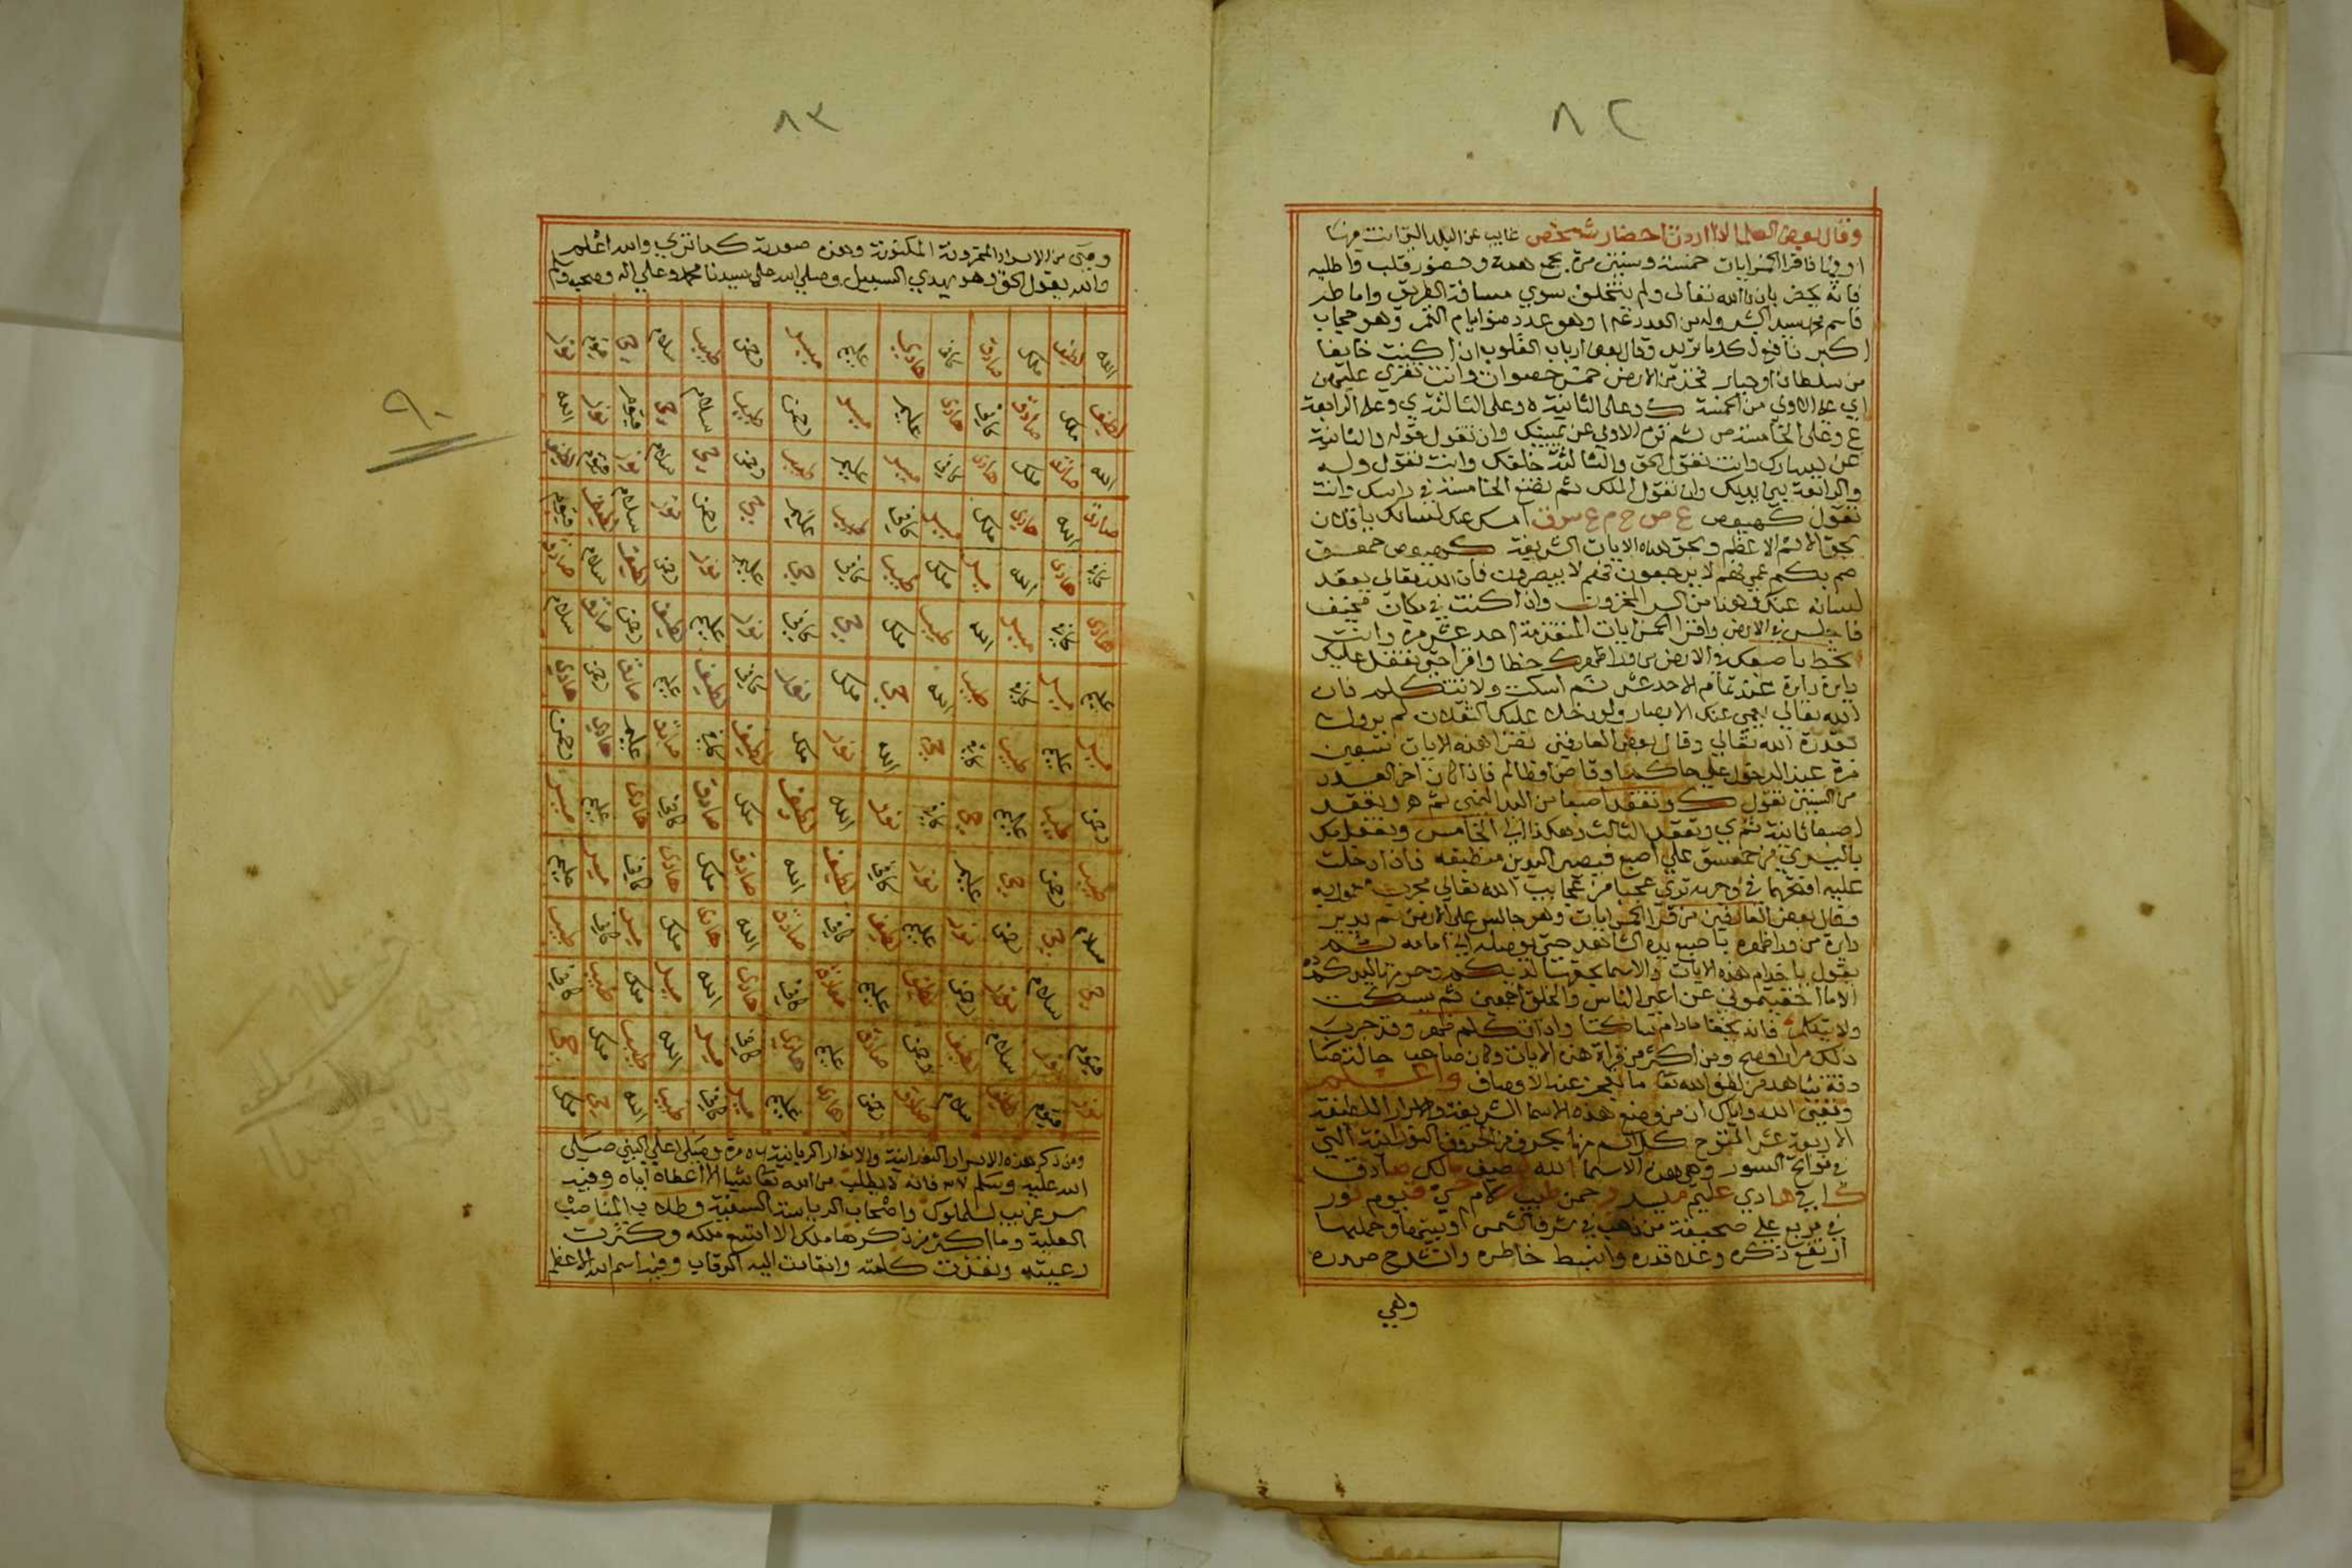 ٨٢
وقال بعض العلما اذا اردت احضار شخص غايب عن البلد التي انت فيها
او فيها فاقرا الخمس ايات خمسة وستين مرة بجمع همة وحضور قلب واطلبه
فانه يحضر باذن الله تعالى ولم يتخلف سوي مسافة الطريق واما طه
فاسم محمد سيد البشر وله من العدد وهو عدد ضو ايام القمر وهو حجاب
اكبر نافع لكل ما تريد وقال بعض ارباب القلوب اذا كنت خايفا
من سلطان او جبار فخذ من الارض خمس حصوات وانت تقري عليهن
اي على الاولي من الخمسة ك وعلى الثانية ه وعلى الثالثة ي وعلى الرابعة
ع وعلى الخامسة ص ثم ترم الاولي عن يمينك وان تقول قوله والثانية
عن يسارك وانت تقول الحق والثالثة خلفك وانت تقول وله
والرابعة بين يديك وان تقول الملك ثم تضع الخامسة في راسك وانت
تقول كهيعص ع ص ح م ع س ق امسك عنك لسانك يا فلان
بحق الاسم الاعظم وبحق هذه الايات الشريفة كهيعص حمعسق
صم بكم عمي فهم لا يرجعون فهم لا يبصرون فان الله تعالي يعقد
لسانه عنك وهذا من السر المخزون واذا كنت في مكان مخيف
فاجلس في الارض واقرا الخمس ايات المتقدمة احد عشر مرة وانت
تخط باصبعك في الارض من وراء ظهرك خطا واقرا حتي تقفل عليك
دايرة دايرة عند تمام الاحد عشر ثم اسكت ولا تتكلم فان
الله تعالي يعمي عنك الابصار ولو دخلت عليك الثقلان لم يروك
بقدرة الله تعالي وقال بعض العارفين تقرا هذه الايات
مرة عند الدخول علي حاكم او قاض او ظالم فاذا كان اخر العدد
من الستين تقول ك وتعقد اصبعا من اليد اليمني ثم ه وتعقد
اصبعا ثانية ثم ي وتعقد الثالث وهكذا الي الخامس وتفعل ذلك
باليسري من حمعسق علي اصبع فيصير اليدين منطبقه فاذا دخلت
عليه افتحهما في وجهه تري عجبا من عجايب الله تعالي مجرب
وقال بعض العارفين من قرا الخمس ايات وهو جالس على الارض ثم يدير
دايرة من وراء ظهره باصبع يده الشاهد حتي يوصله الي امامه ثم
يقول يا خدام هذه الايات والاسما بحقها لديكم وحرمتها اليكم
الا ما اخفيتموني عن اعين الناس والخلق اجمعين ثم يسكت
ولا يتكلم فانه يخفا مادام ساكتا واذا تكلم ظهر وقد جرب
ذلك مرارا وصح ومن اكثر من قراة هذه الايات وكان صاحب حالة
دقة يشاهد من لطف الله تعا ما يعجز عنه الاوصاف واعلم
وفقني الله واياك ان من وضع هذه الاسما الشريفة والاسرار اللطيفة
الاربعة عشر المفتوح كل اسم منها بحرف من الحروف النورانية التي
في فواتح السور وهي هذه الاسما الله لطيف ملك صادق
كافي هادي عليم رحمن طيب سلام حي قيوم نور
في مربع علي صحيفة من ذهب في شرف الشمس او بيتها وحملها
ارتفع ذكره وعلا قدره وانبسط خاطره وانشرح صدره
وهي
٨٣
وهي من الاسرار المخزونة المكنونة وهذه صورته كما تري والله اعلم
والله يقول الحق وهو يهدي السبيل وصلي الله علي سيدنا محمد وعلي اله وصحبه وسلم
الله لطيف ملك صادق كافي هادي عليم رحمن طيب سلام حي قيوم نور
لطيف ملك صادق كافي هادي عليم رحمن طيب سلام حي قيوم نور الله
الله صادق ملك هادي كافي عليم طيب رحمن حي سلام نور قيوم لطيف
صادق الله هادي ملك كافي طيب عليم حي رحمن نور سلام لطيف قيوم
كافي هادي الله ملك طيب كافي حي عليم نور رحمن لطيف سلام صادق
هادي كافي الله طيب ملك حي كافي نور عليم لطيف رحمن صادق سلام
عليم كافي طيب الله حي ملك نور كافي لطيف عليم صادق رحمن هادي
عليم طيب كافي حي الله نور ملك لطيف كافي صادق عليم هادي رحمن
رحمن طيب عليم حي كافي نور الله لطيف ملك صادق كافي هادي عليم
طيب رحمن حي عليم نور كافي لطيف الله صادق ملك هادي كافي عليم
سلام حي رحمن نور عليم لطيف كافي صادق الله هادي ملك كافي طيب
حي سلام نور رحمن لطيف عليم صادق كافي هادي الله ملك طيب كافي
قيوم نور سلام لطيف رحمن صادق عليم هادي كافي الله طيب ملك حي
نور قيوم لطيف سلام صادق رحمن هادي عليم كافي طيب الله حي ملك
ومن ذكر هذه الاسرار النورانية والانوار الربانية مرة وصلى علي النبي صلى
الله عليه وسلم فانه لا يطلب من الله تعا شيا الا اعطاه اياه وفيه
سر غريب للملوك واصحاب الرياسة السفية وطلاب المناصب
العلية وما اكثر من ذكرها ملك الا اتسع ملكه وكثرت
رعيته ونفذت كلمته وانقادت اليه الرقاب وفيه اسم الله الاعظم
٩٠